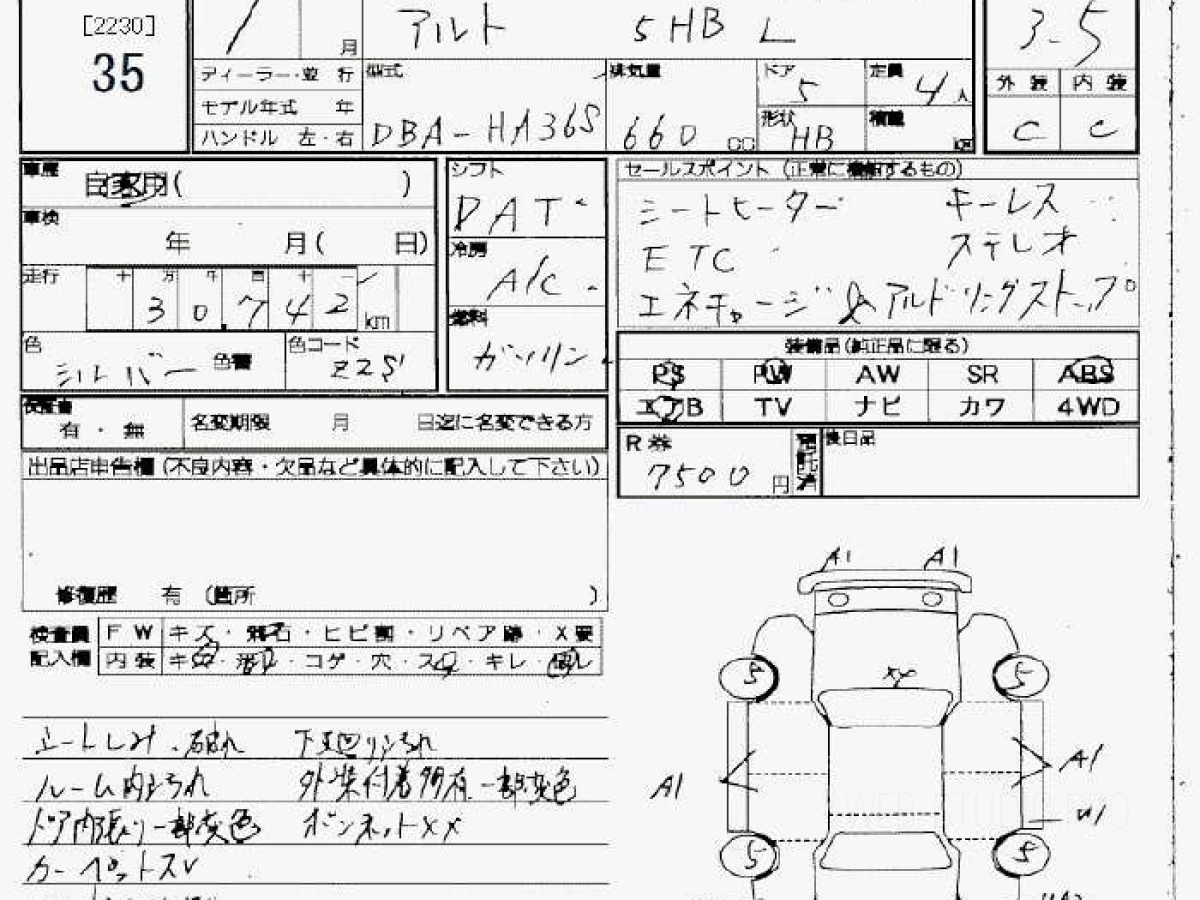 [2230]
35
月
アルト 5HB L
3-5
ディーラー・並 行
モデル年式 年
ハンドル 左・右
型式
DBA-HA36S
排気量
660 cc
ドア
5
定員
4 人
形状
HB
積載
外 装 内 装
C C
車歴
自家用( )
車検
年 月( 日)
走行
十 万 千 百 十 一
3 0 . 7 4 2 km
色
シルバー 色替
色コード
Z2S
シフト
DAT
冷房
A/C
燃料
ガソリン
セールスポイント (正常に機能するもの)
シートヒーター キーレス
ETC ステレオ
エネチャージ & アルドリングストップ
装備品(純正品に限る)
PS PW AW SR ABS
エアB TV ナビ カワ 4WD
保証書
有 ・ 無
名変期限 月 日迄に名変できる方
R券
7500 円
後日品
出品店申告欄(不良内容・欠品など具体的に記入して下さい)
修復歴 有 (箇所 )
検査員
記入欄
F W キズ・飛石・ヒビ割・リペア跡・X要
内装 コゲ・穴・ キレ・
シートしみ、破れ
ルーム内よごれ 外装付着物有 一部変色
ドア内張り一部変色 ボンネットXX
カーペットスレ
A1 A1
5 5
XX
A1 A1
U1
5 5